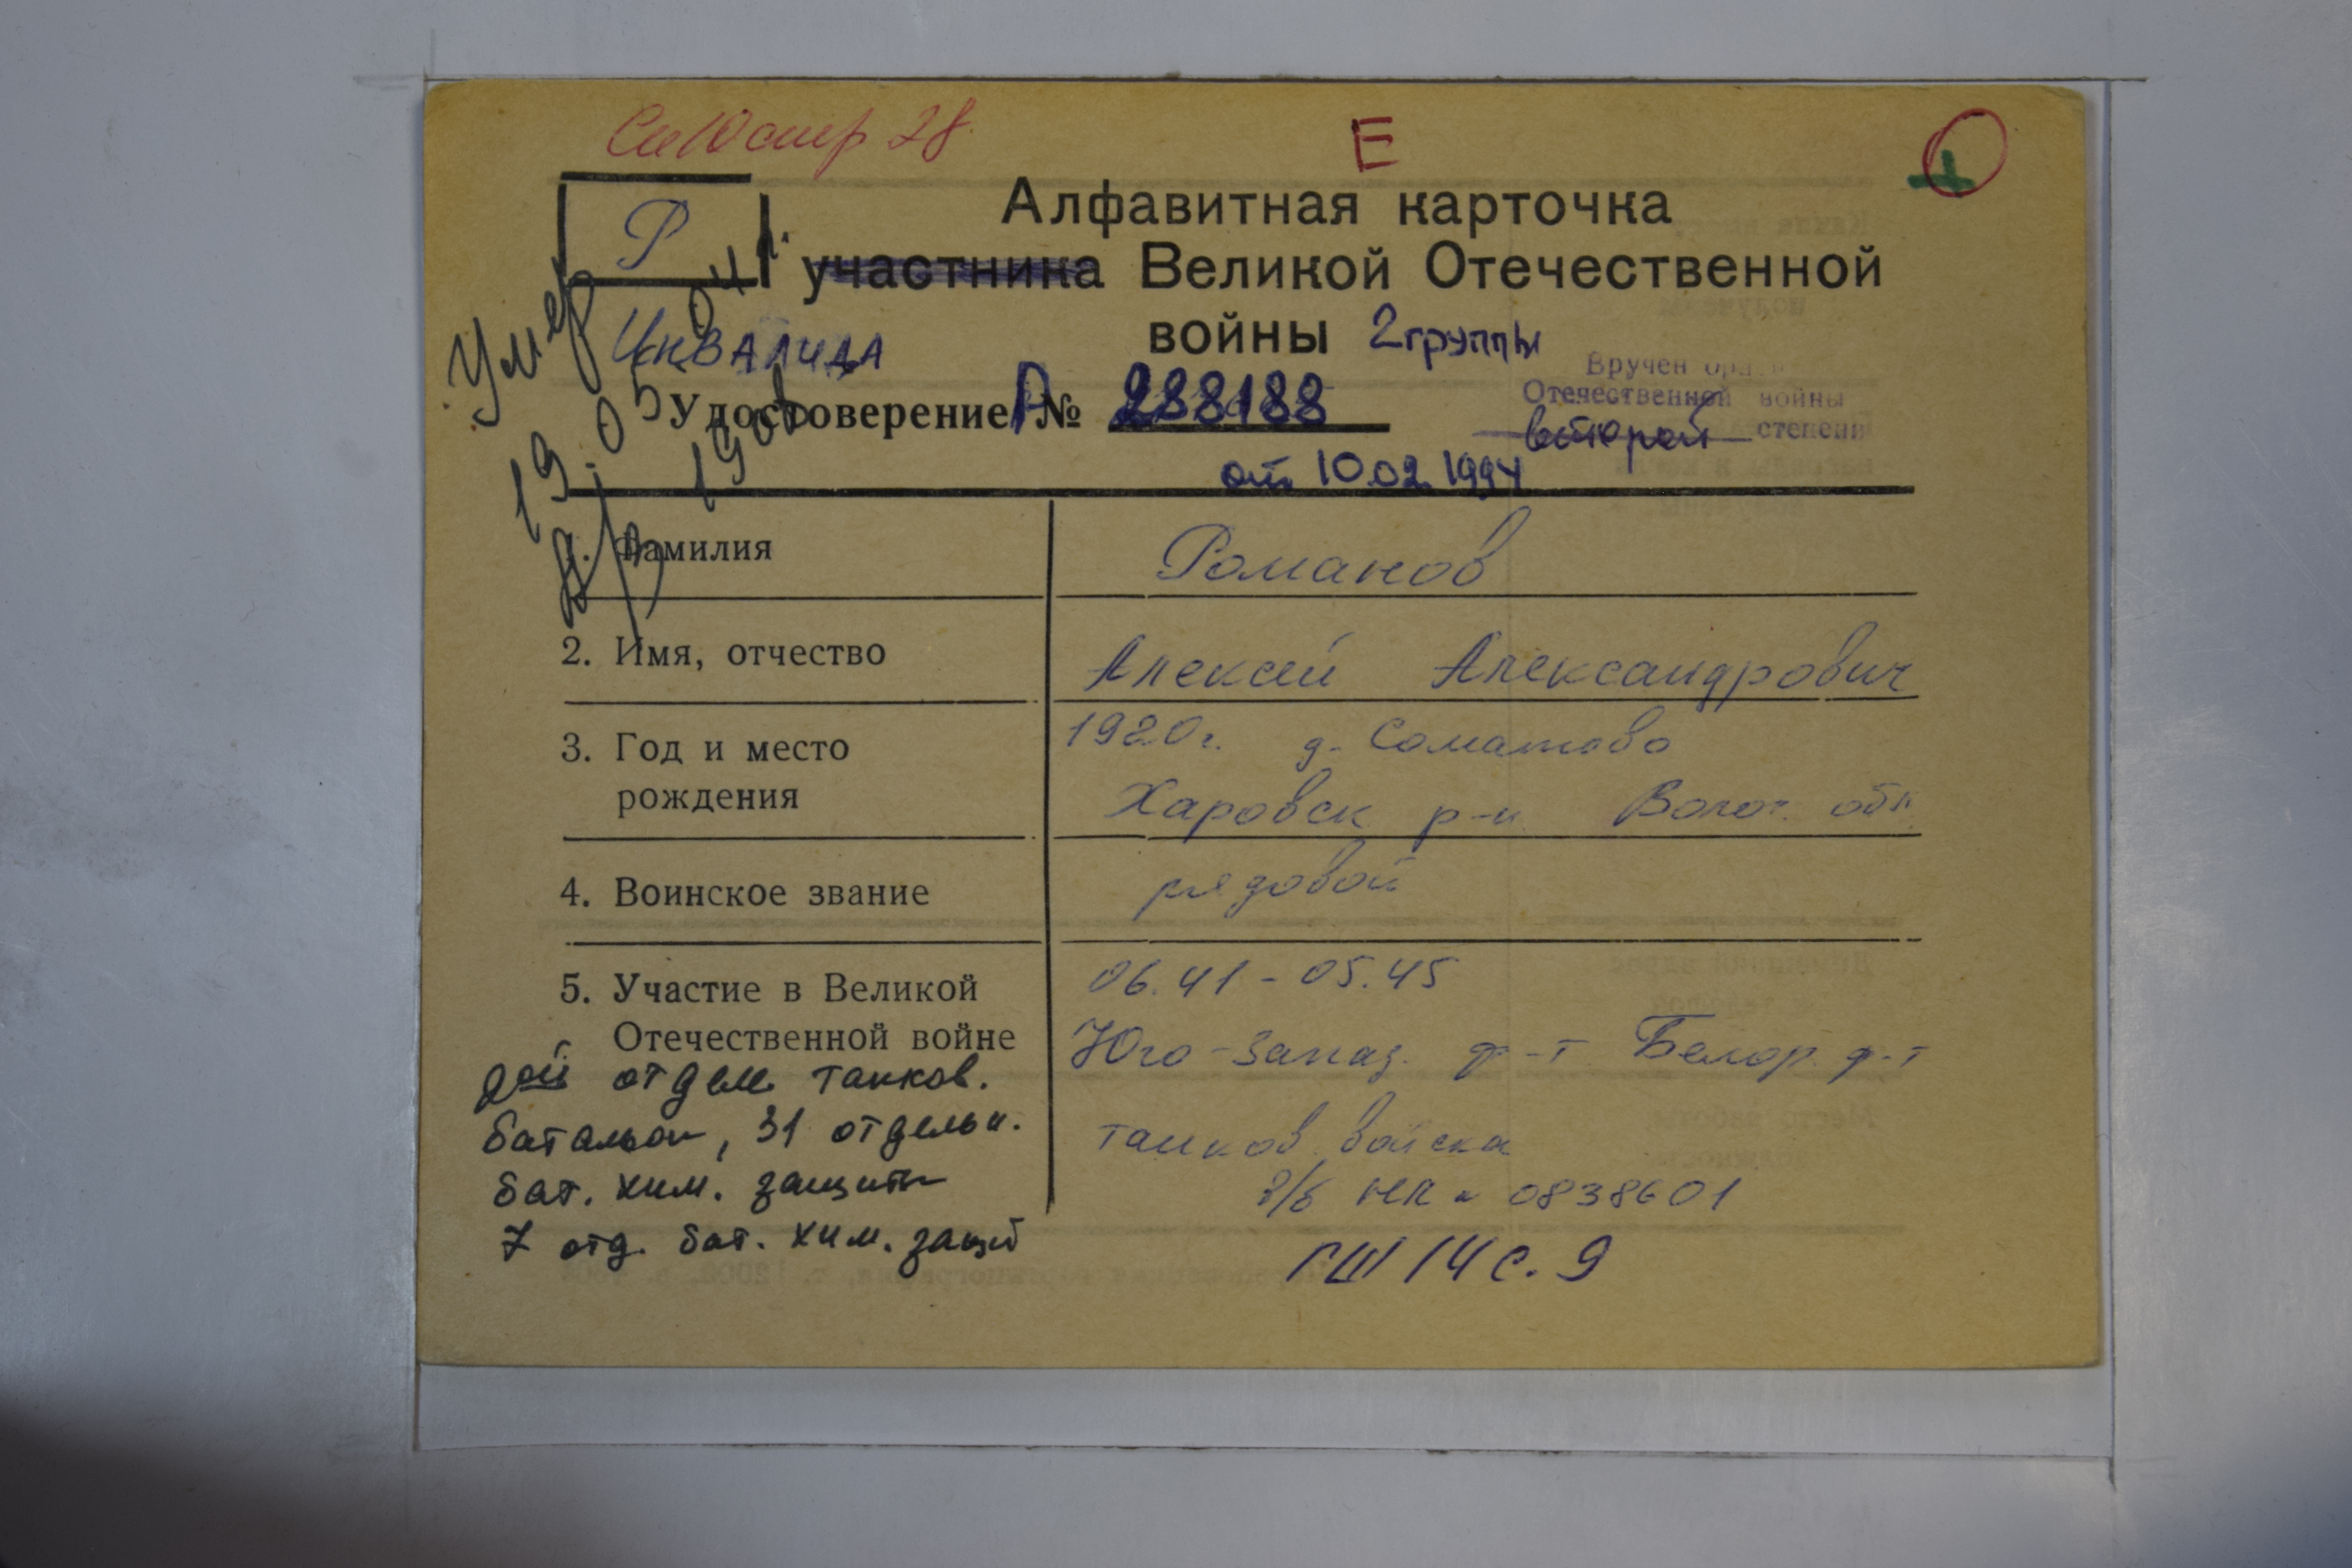 стр 28
Е
Р
Алфавитная карточка
участника Великой Отечественной
Инвалида
войны 2 группы
Удостоверение А № 288188
от 10.02.1994
Вручен орд
Отечественной войны
второй степени
Умер
19.05
1. Фамилия Романов
2. Имя, отчество Алексей Александрович
3. Год и место рождения 1920г. д. Соматово
Харовск р-н Волог. обл
4. Воинское звание рядовой
5. Участие в Великой Отечественной войне 06.41 - 05.45
Юго-Запад. ф-т Белор. ф-т
танков войска
в/б НП № 0838601
ГШ 14 с. 9
отдел танков.
батальон, 31 отдельн.
бат. хим. защиты
7 отд. бат. хим. защ